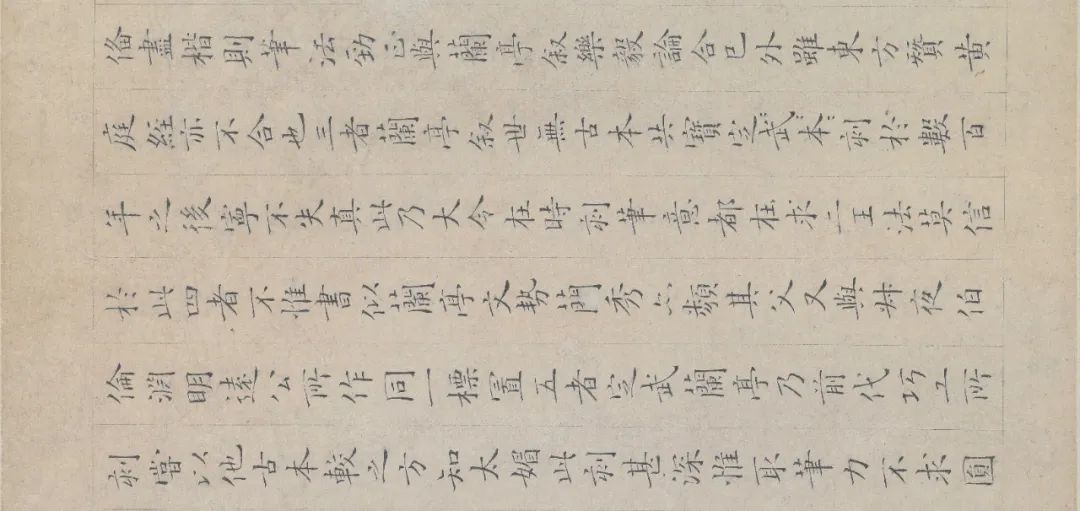 俻盡楷則筆法勁正與蘭亭叙樂毅論合已外雖東方贊黄
庭經亦不合也三者蘭亭叙世無古本共寳定武本刻於數百
年之後寧不失真此乃大令在時刻筆意都在求二王法莫信
於此四者不惟書似蘭亭文勢簡秀亦類其父又與叔夜伯
倫淵明遠公所作同一標置五者定武蘭亭乃前代巧工所
刻嘗以他古本較之方知太媚此刻甚深惟取筆力不求圓